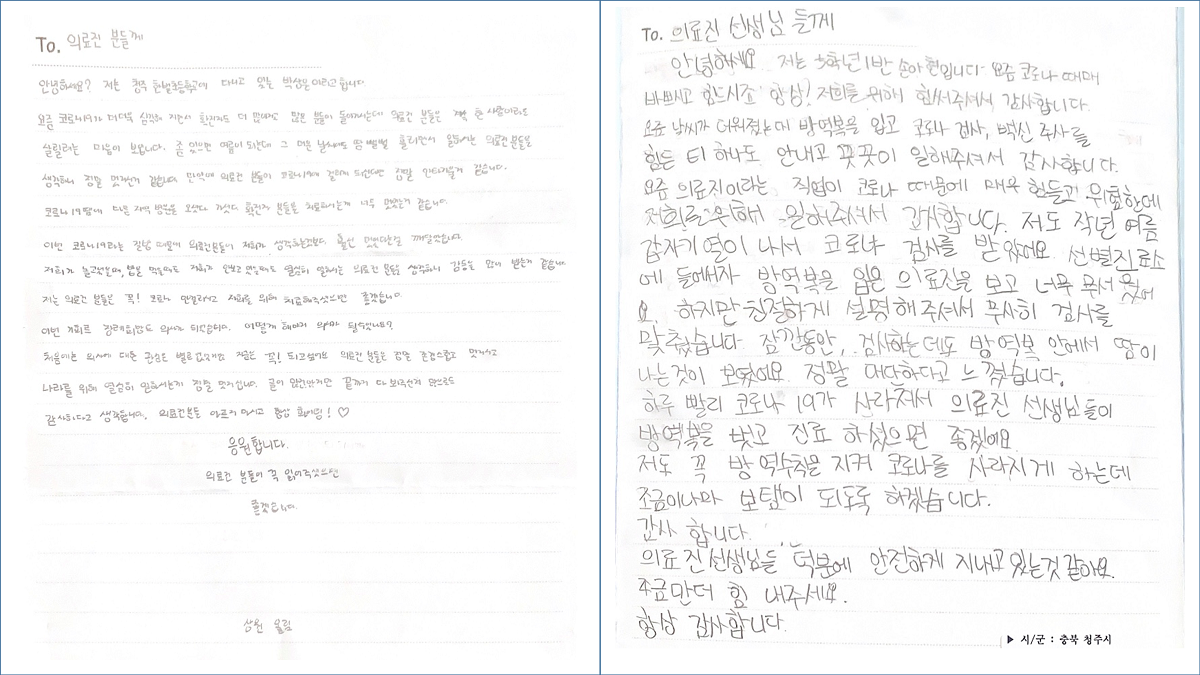 To. 의료진 분들께
안녕하세요? 저는 청주 한벌초등학교에 다니고 있는 박상원이라고 합니다.
요즘 코로나19가 더더욱 심각해 지면서 확진자도 더 많아지고 많은 분들이 돌아가시는데 의료진 분들은 한 사람이라도
살릴려는 마음이 보입니다. 좀 있으면 여름이 되는데 그 더운 날씨에도 땀 뻘뻘 흘리면서 일하시는 의료진 분들을
생각하니 정말 멋지신거 같습니다. 만약에 의료진 분들이 코로나19에 걸리게 되신다면 정말 안타까울거 같습니다.
코로나19 땜에 다른 지역 병원을 오셨다 가셨다 확진자 분들을 치료하시는게 너무 멋있는거 같습니다.
이번 코로나19라는 질병 때문에 의료진분들이 저희가 생각하는것보다 훨씬 멋있다는걸 깨달았습니다.
저희가 놀고있을때, 밥을 먹는때도 저희가 안보고있을때도 열심히 일하시는 의료진 분들을 생각하니 감동을 많이 받는거 같습니다.
저는 의료진 분들은 꼭! 코로나 안걸리시고 저희를 위해 치료해주셨으면 좋겠습니다.
이번 계기로 장래희망도 의사가 되었습니다. 어떻게 해야지 의사가 될수있나요?
처음에는 의사에 대한 관심은 별로 없었는데 지금은 꼭! 되고싶어요 의료진 분들은 정말 존경스럽고 멋지시고
나라를 위해 열심히 일하시는게 정말 멋지십니다. 글이 많긴하지만 끝까지 다 봐주신거 만으로도
감사하다고 생각합니다, 의료진분들 아프지 마시고 항상 화이팅! ♡
응원합니다.
의료진 분들이 꼭 읽어주셨으면
좋겠습니다.
상원 올림
To. 의료진 선생님 들께
안녕하세요 저는 5학년 1반 손아현입니다. 요즘 코로나 때매
바쁘시고 힘드시죠 항상! 저희를 위해 힘써주셔서 감사합니다.
요즘 날씨가 더워졌는데 방역복을 입고 코로나 검사, 백신 주사를
힘든 티 하나도 안내고 꿋꿋이 일해주셔서 감사합니다.
요즘 의료진이라는 직업이 코로나 때문에 매우 힘들고 위험한에
저희를 위해 일해주셔서 감사합니다. 저도 작년 여름
갑자기 열이 나서 코로나 검사를 받았어요. 선별진료소
에 들어가자 방역복을 입은 의료진을 보고 너무 무서웠어
요. 하지만 친절하게 설명해주셔서 무사히 검사를
맞췄습니다. 잠깐동안, 검사하는데도 방역복 안에서 땀이
나는것이 보였어요. 정말 대단하다고 느꼈습니다.
하루 빨리 코로나 19가 사라져서 의료진 선생님들이
방역복을 벗고 진료 하셨으면 좋겠어요.
저도 꼭 방역수칙을 지켜 코로나를 사라지게 하는데
조금이나마 보탬이 되도록 하겠습니다.
감사 합니다.
의료진 선생님들 덕분에 안전하게 지내고 있는것 같아요.
조금만더 힘 내주세요.
항상 감사합니다.
▶ 시/군 : 충북 청주시